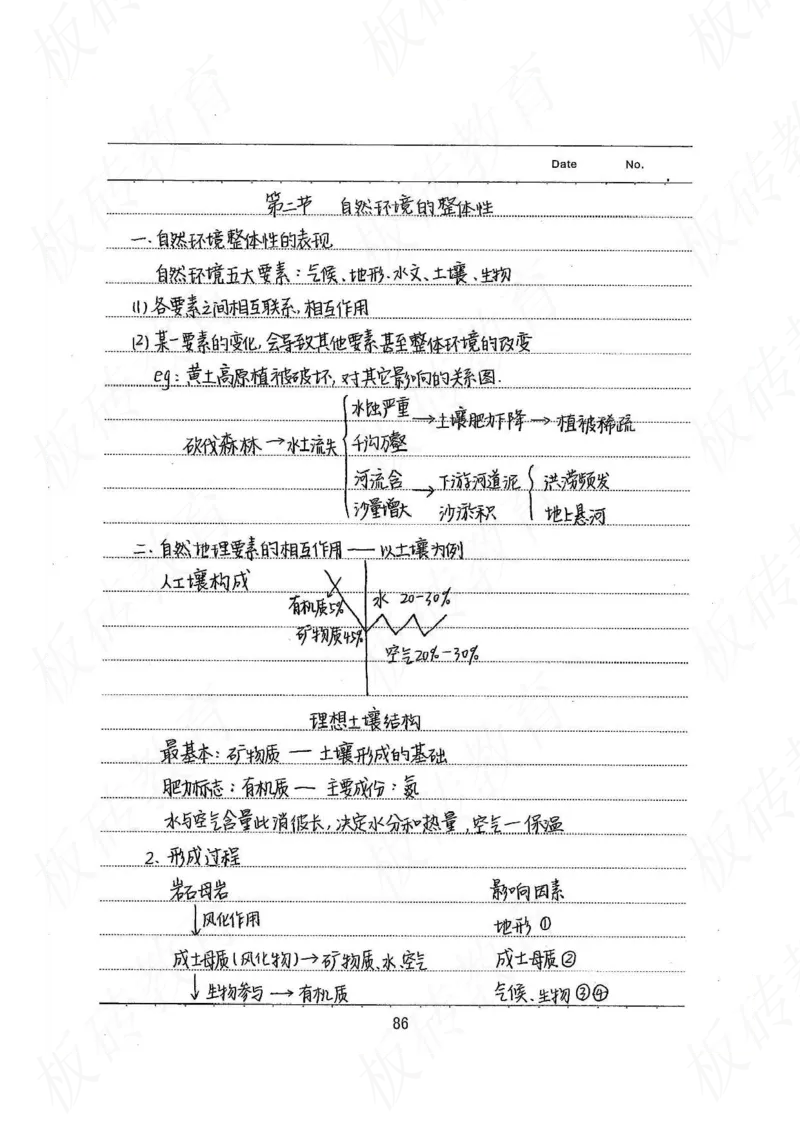 Date No.
第二节 自然环境的整体性
一.自然环境整体性的表现
自然环境五大要素:气候、地形.水文、土壤、生物
(1)各要素之间相互联系,相互作用
(2)某一要素的变化,会导致其他要素甚至整体环境的改变
eg:黄土高原植被破坏,对其它影响的关系图.
水蚀严重→土壤肥力下降→植被稀疏
砍伐森林→水土流失 千沟万壑
河流含 下游河道泥 洪涝频发
沙量增大→沙淤积 地上悬河
二.自然地理要素的相互作用——以土壤为例
人工壤构成
有机质5% 水 20-30%
矿物质45%
空气20%-30%
理想土壤结构
最基本:矿物质—土壤形成的基础
肥力标志:有机质—主要成份:氮
水与空气含量此消彼长,决定水分和热量,空气—保温
2、形成过程
岩石母岩 影响因素
↓风化作用 地形①
成土母质(风化物)→矿物质、水、空气 成土母质②
↓生物参与→有机质 气候、生物③④
86
板砖教育